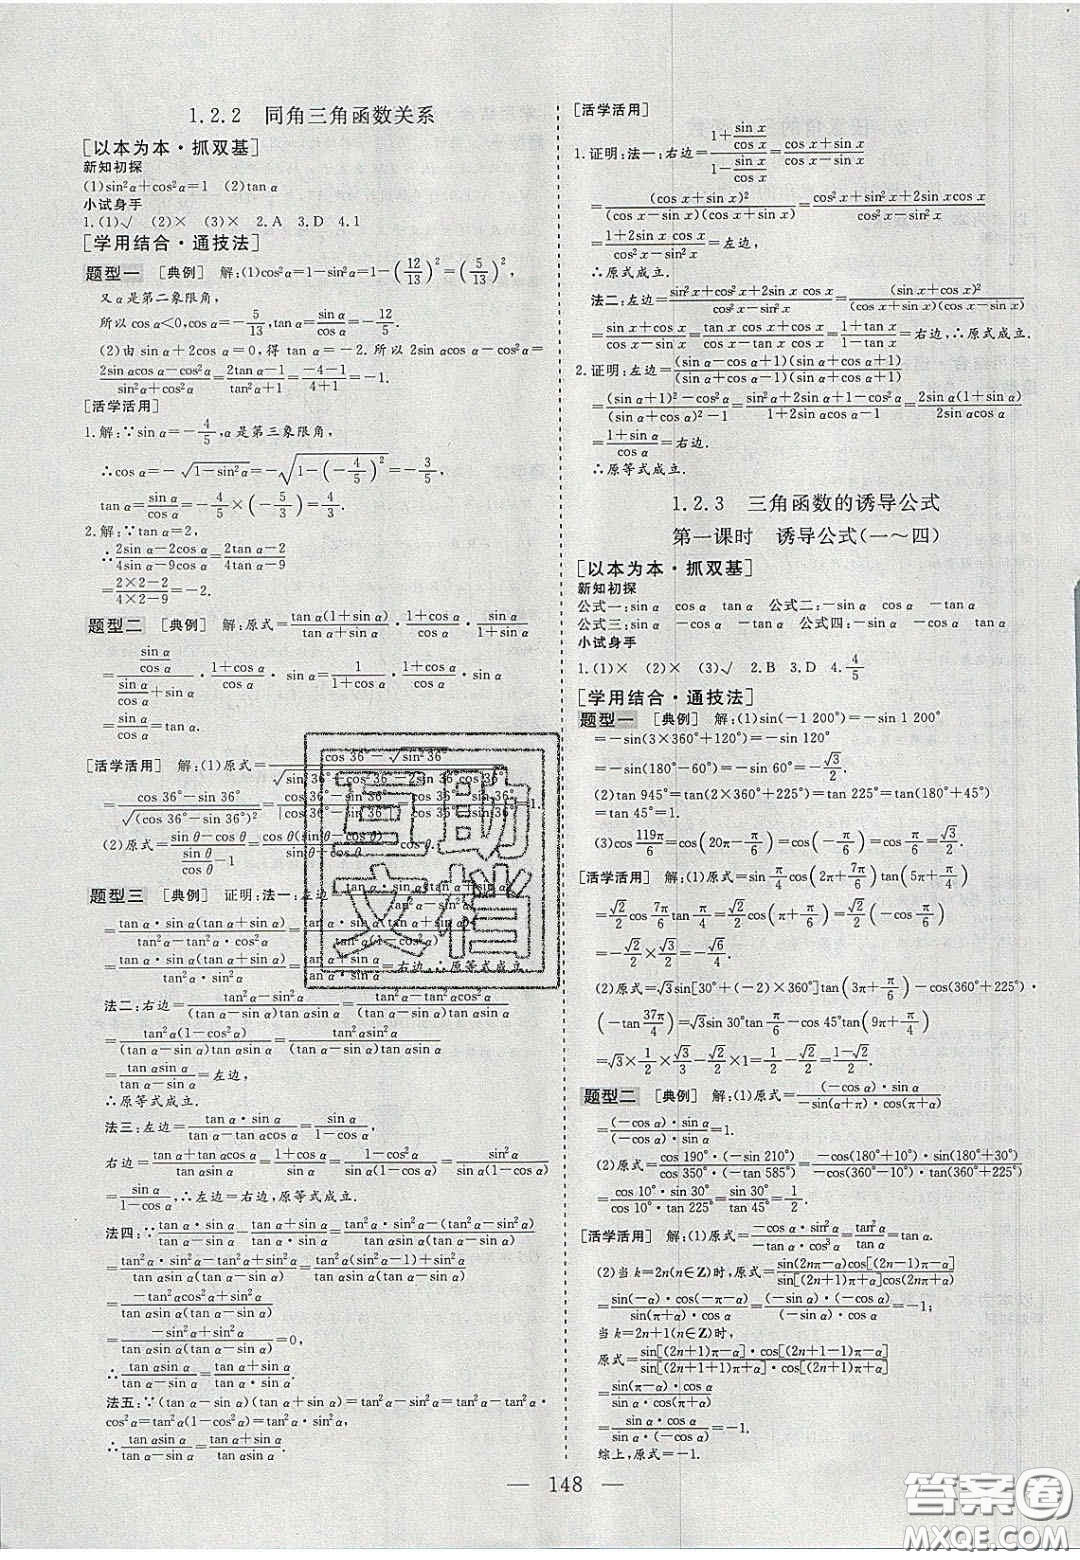 1.2.2 同角三角函数关系
[以本为本·抓双基]
新知初探
(1)sin²α+cos²α=1 (2)tan α
小试身手
1.(1)√ (2)× (3)× 2.A 3.D 4.1
[学用结合·通技法]
题型一 [典例] 解:(1)cos²α=1-sin²α=1-(12/13)²=(5/13)²,
又α是第二象限角,
所以cos α<0,cos α=-5/13,tan α=sin α/cos α=-12/5.
(2)由 sin α+2cos α=0,得 tan α=-2. 所以 2sin αcos α-cos²α=
(2sin αcos α-cos²α)/(sin²α+cos²α)=(2tan α-1)/(tan²α+1)=(-4-1)/(4+1)=-1.
[活学活用]
1.解:∵sin α=-4/5,α是第三象限角,
∴cos α=-√(1-sin²α)=-√(1-(-4/5)²)=-3/5,
tan α=sin α/cos α=-4/5×(-5/3)=4/3.
2.解:∵tan α=2,
∴(2sin α-2cos α)/(4sin α-9cos α)=(2tan α-2)/(4tan α-9)
=(2×2-2)/(4×2-9)=-2.
题型二 [典例] 解:原式=tan α(1+sin α)/(tan α+sin α)·(1+cos α)/cos α·sin α/(1+sin α)
=(sin α/cos α)/(sin α/cos α+sin α)·(1+cos α)/cos α·sin α=1/(1+cos α)·(1+cos α)/cos α·sin α
=sin α/cos α=tan α.
[活学活用] 解:(1)原式=
(cos 36°-sin 36°)/√(cos 36°-sin 36°)²
(2)原式=(sin θ-cos θ)/(sin θ/cos θ-1)
题型三 [典例] 证明:法一:左边
=右边,∴原等式成立.
法二:右边=(tan²α-sin²α)/((tan α-sin α)tan αsin α)=(tan²α-tan²αcos²α)/((tan α-sin α)tan αsin α)
=tan²α(1-cos²α)/((tan α-sin α)tan αsin α)=tan²αsin²α/((tan α-sin α)tan αsin α)
=tan αsin α/(tan α-sin α)=左边,
∴原等式成立.
法三:左边=tan α·sin α/(tan α-tan αcos α)=sin α/(1-cos α),
右边=(tan α+tan αcos α)/(tan αsin α)=(1+cos α)/sin α=(1-cos²α)/(sin α(1-cos α))=sin²α/(sin α(1-cos α))
=sin α/(1-cos α),∴左边=右边,原等式成立.
法四:∵tan α·sin α/(tan α-sin α)-(tan α+sin α)/(tan α·sin α)=(tan²α·sin²α-(tan²α-sin²α))/(tan αsin α(tan α-sin α))
=(tan²α·sin²α-tan²α+sin²α)/(tan αsin α(tan α-sin α))=(tan²α(sin²α-1)+sin²α)/(tan αsin α(tan α-sin α))
=(-tan²αcos²α+sin²α)/(tan αsin α(tan α-sin α))
=(-sin²α+sin²α)/(tan αsin α(tan α-sin α))=0,
∴tan α·sin α/(tan α-sin α)=(tan α+sin α)/(tan αsin α).
法五:∵(tan α-sin α)(tan α+sin α)=tan²α-sin²α=tan²α-tan²α·
cos²α=tan²α(1-cos²α)=tan²α·sin²α,
∴tan α·sin α/(tan α-sin α)=(tan α+sin α)/(tan αsin α).
[活学活用]
1.证明:法一:右边=(1+sin x/cos x)/(1-sin x/cos x)=(cos x+sin x)/(cos x-sin x)
=(cos x+sin x)²/((cos x-sin x)(cos x+sin x))=(cos²x+sin²x+2sin xcos x)/(cos²x-sin²x)
=(1+2sin x cos x)/(cos²x-sin²x)=左边,
∴原式成立.
法二:左边=(sin²x+cos²x+2sin xcos x)/(cos²x-sin²x)=(sin x+cos x)²/((cos x+sin x)(cos x-sin x))
=(sin x+cos x)/(cos x-sin x)=(tan x cos x+cos x)/(cos x-tan x cos x)=(1+tan x)/(1-tan x)=右边,∴原式成立.
2.证明:左边=(sin α-cos α+1)(sin α+cos α+1)/((sin α+cos α-1)(sin α+cos α+1))
=((sin α+1)²-cos²α)/((sin α+cos α)²-1)=(sin²α+2sin α+1-cos²α)/(1+2sin αcos α-1)=2sin α(1+sin α)/(2sin αcos α)
=(1+sin α)/cos α=右边.
∴原等式成立.
1.2.3 三角函数的诱导公式
第一课时 诱导公式(一～四)
[以本为本·抓双基]
新知初探
公式一:sin α cos α tan α 公式二:-sin α cos α -tan α
公式三:sin α -cos α -tan α 公式四:-sin α -cos α tan α
小试身手
1.(1)× (2)× (3)√ 2.B 3.D 4.4/5
[学用结合·通技法]
题型一 [典例] 解:(1)sin(-1 200°)=-sin 1 200°
=-sin(3×360°+120°)=-sin 120°
=-sin(180°-60°)=-sin 60°=-√3/2.
(2)tan 945°=tan(2×360°+225°)=tan 225°=tan(180°+45°)
=tan 45°=1.
(3)cos 119π/6=cos(20π-π/6)=cos(-π/6)=cos π/6=√3/2.
[活学活用] 解:(1)原式=-sin π/4 cos(2π+7π/6)tan(5π+π/4)
=-√2/2 cos 7π/6 tan π/4=-√2/2 cos(π+π/6)=√2/2 cos π/6
=√2/2×√3/2=√6/4.
(2)原式=√3sin[30°+(-2)×360°]tan(3π+π/6)-cos(360°+225°)·
(-tan 37π/4)=√3sin 30°tan π/6-cos 45°tan(9π+π/4)
=√3×1/2×√3/3-√2/2×1=1/2-√2/2=(1-√2)/2.
题型二 [典例] 解:(1)原式=(-cos α)·sin α/(-sin(α+π)·cos(π+α))
=(-cos α)·sin α/((-cos α)·sin α)=1.
(2)原式=cos 190°·(-sin 210°)/(cos 350°·(-tan 585°))=-cos(180°+10°)·sin(180°+30°)/(-cos(360°-10°)·tan(360°+225°))
=cos 10°·sin 30°/(cos 10°·tan 225°)=sin 30°/tan 45°=1/2.
[活学活用] 解:(1)原式=-cos α·sin²α/(-tan α·cos³α)=tan²α/tan α=tan α.
(2)当k=2n(n∈Z)时,原式=sin(2nπ-α)·cos[(2n-1)π-α]/(sin[(2n+1)π+α]·cos(2nπ+α))
=sin(-α)·cos(-π-α)/(sin(π+α)·cos α)=(-sin α)·(-cos α)/((-sin α)·cos α)=-1;
当k=2n+1(n∈Z)时,
原式=sin[(2n+1)π-α]·cos[(2n+1-1)π-α]/(sin[(2n+1+1)π+α]·cos[(2n+1)π+α])
=sin(π-α)·cos α/(sin α·cos(π+α))
=sin α·cos α/(sin α(-cos α))=-1.
综上,原式=-1.
— 148 —
互助
文档
答案圈
MXQE.COM